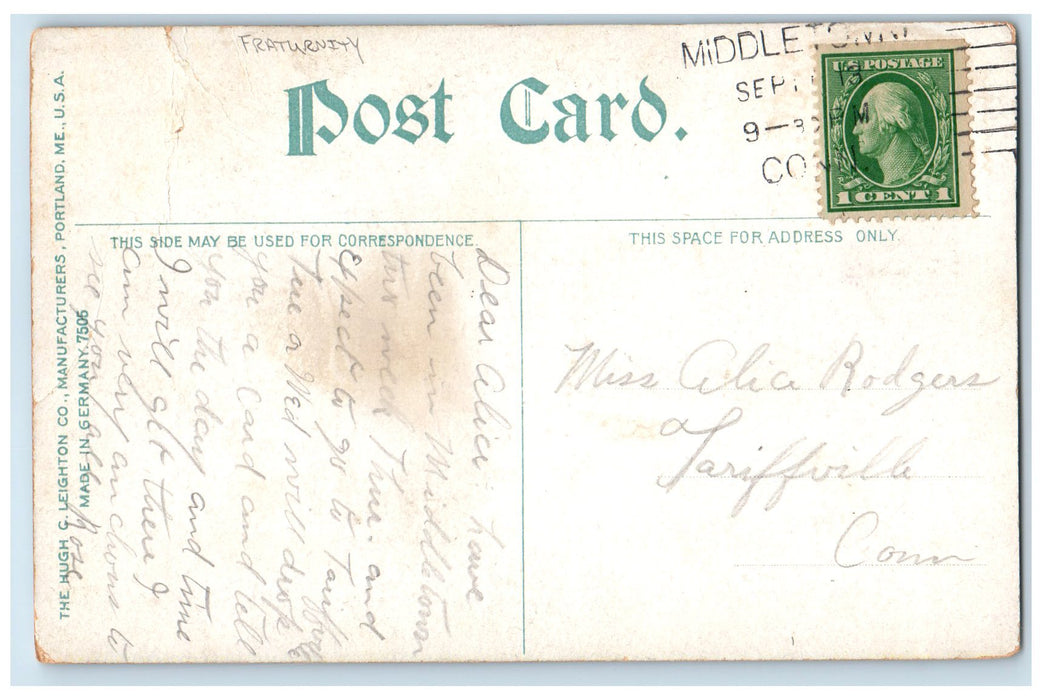 FRATURNITY
Post Card.
MIDDLETOWN
SEPT
9-30 PM
CONN.
U.S. POSTAGE
1 CENT 1
THIS SIDE MAY BE USED FOR CORRESPONDENCE.
THIS SPACE FOR ADDRESS ONLY.
THE HUGH C. LEIGHTON CO., MANUFACTURERS, PORTLAND, ME., U.S.A.
MADE IN GERMANY. 7505
Dear Alice have
been in Middletown
this week Thur. and
expect to go to Tariffville
Tue a Wed will drop
you a card and tell
you the day and time
I will get there I
am very anchous to
see you
Rose
Miss Alice Rodgers
Tariffville
Conn